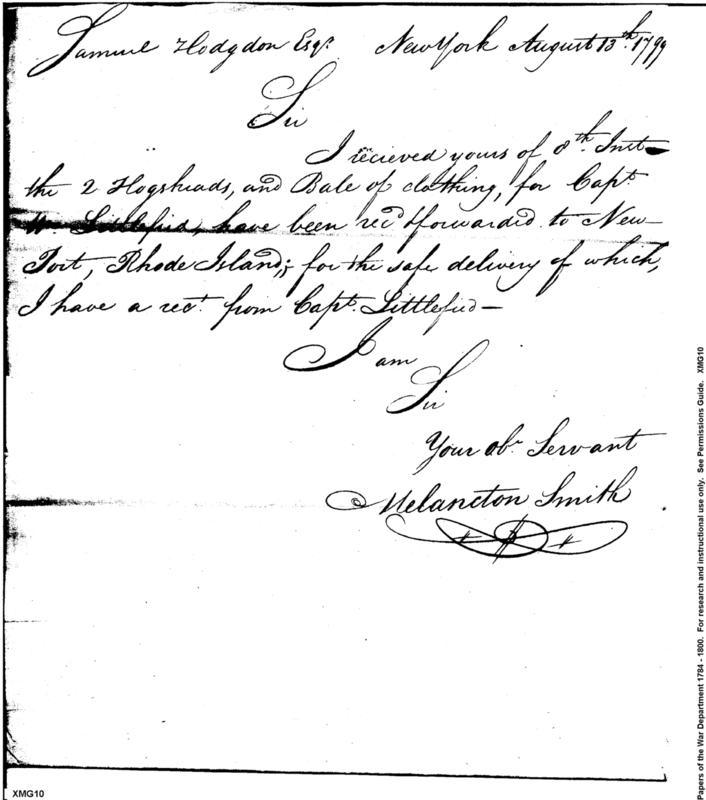 Samuel Hodgdon Esqr. New York August 13th. 1799
Sir
I recieved yours of 8th. Inst
the 2 Hogsheads, and Bale of clothing, for Capt.
Littlefied, have been recd & forwarded to New-
Port, Rhode Island; for the safe delivery of which,
I have a rect. from Capt. Littlefied—
I am
Sir
Your obt. Servant
Melancton Smith
Papers of the War Department 1784 - 1800. For research and instructional use only. See Permissions Guide. XMG10
XMG10